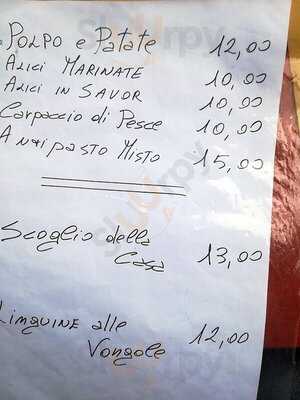 Polpo e Patate 12,00
Alici Marinate 10,00
Alici in Savor 10,00
Carpaccio di Pesce 10,00
Antipasto Misto 15,00
Scoglio della
Casa 13,00
Linguine alle
Vongole 12,00